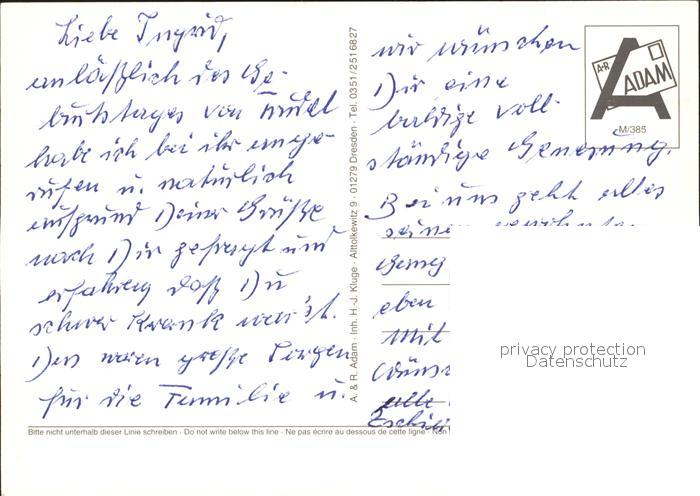 Liebe Ingrid,
anläßlich des Ge-
burtstages von Trudel
habe ich bei ihr ange-
rufen u. natürlich
aufgrund Deiner Grüße
nach Dir gefragt und
erfahren daß Du
schwer krank warst.
Das waren große Sorgen
für die Familie u.
wir wünschen
Dir eine
baldige voll-
ständige Genesung.
Bei uns geht alles
seinen gewohnten
eben
Mit
alle
A. & R. Adam · Inh. H.-J. Kluge · Alttolkewitz 9 · 01279 Dresden · Tel. 0351/2516827
A+R
ADAM
M/385
privacy protection
Datenschutz
Bitte nicht unterhalb dieser Linie schreiben · Do not write below this line · Ne pas écrire au dessous de cette ligne · Non